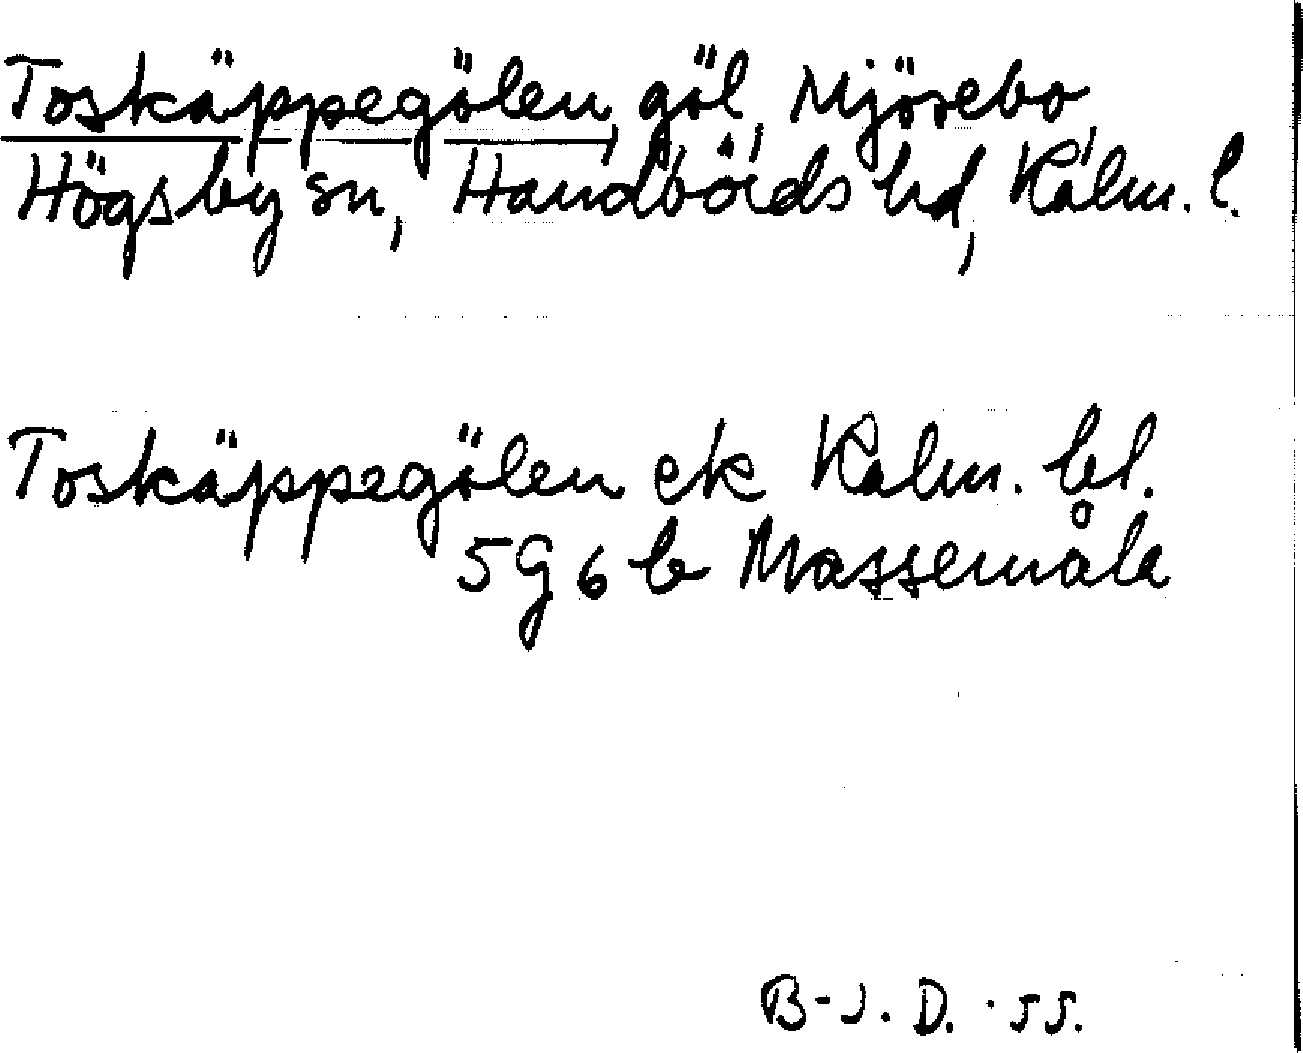 Toskäppegölen, göl, Mjösebo,
Högsby sn, Handbörds hd, Kalm. l.
Toskäppegölen ek Kalm. bl.
5G 6 b Massemåla
B-J. D. -55.